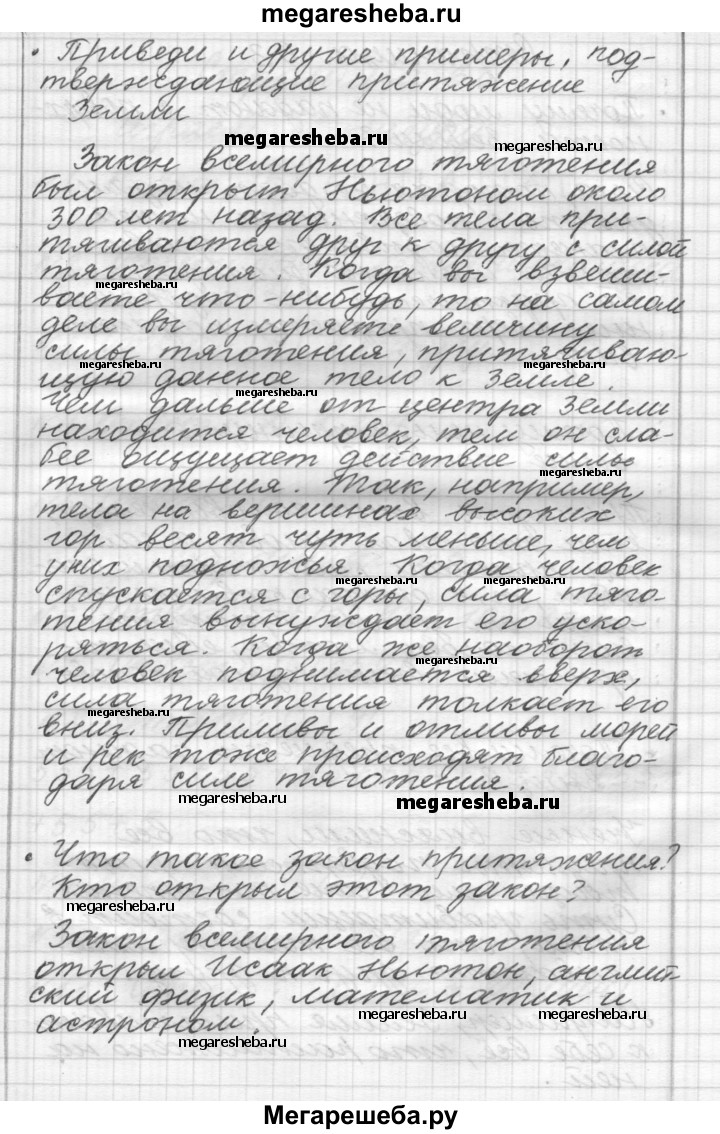 megaresheba.ru
• Приведи и другие примеры, под-
тверждающие притяжение
Земли
megaresheba.ru
Закон всемирного тяготения
был открыт Ньютоном около
300 лет назад. Все тела при-
тягиваются друг к другу с силой
тяготения. Когда вы взвеши-
megaresheba.ru
ваете что-нибудь, то на самом
деле вы измеряете величину
силы тяготения, притягиваю-
megaresheba.ru megaresheba.ru
щую данное тело к Земле.
megaresheba.ru megaresheba.ru
Чем дальше от центра Земли
находится человек, тем он сла-
бее ощущает действие силы
megaresheba.ru
тяготения. Так, например,
тела на вершинах высоких
гор весят чуть меньше, чем
у них подножья. Когда человек
megaresheba.ru megaresheba.ru
спускается с горы, сила тяго-
тения вынуждает его уско-
ряться. Когда же наоборот
megaresheba.ru
человек поднимается вверх,
сила тяготения толкает его
megaresheba.ru
вниз. Приливы и отливы морей
и рек тоже происходят благо-
даря силе тяготения.
megaresheba.ru megaresheba.ru
• Что такое закон притяжения?
Кто открыл этот закон?
megaresheba.ru
Закон всемирного тяготения
открыл Исаак Ньютон, англий-
ский физик, математик и
megaresheba.ru megaresheba.ru
астроном.
megaresheba.ru
Мегарешеба.ру